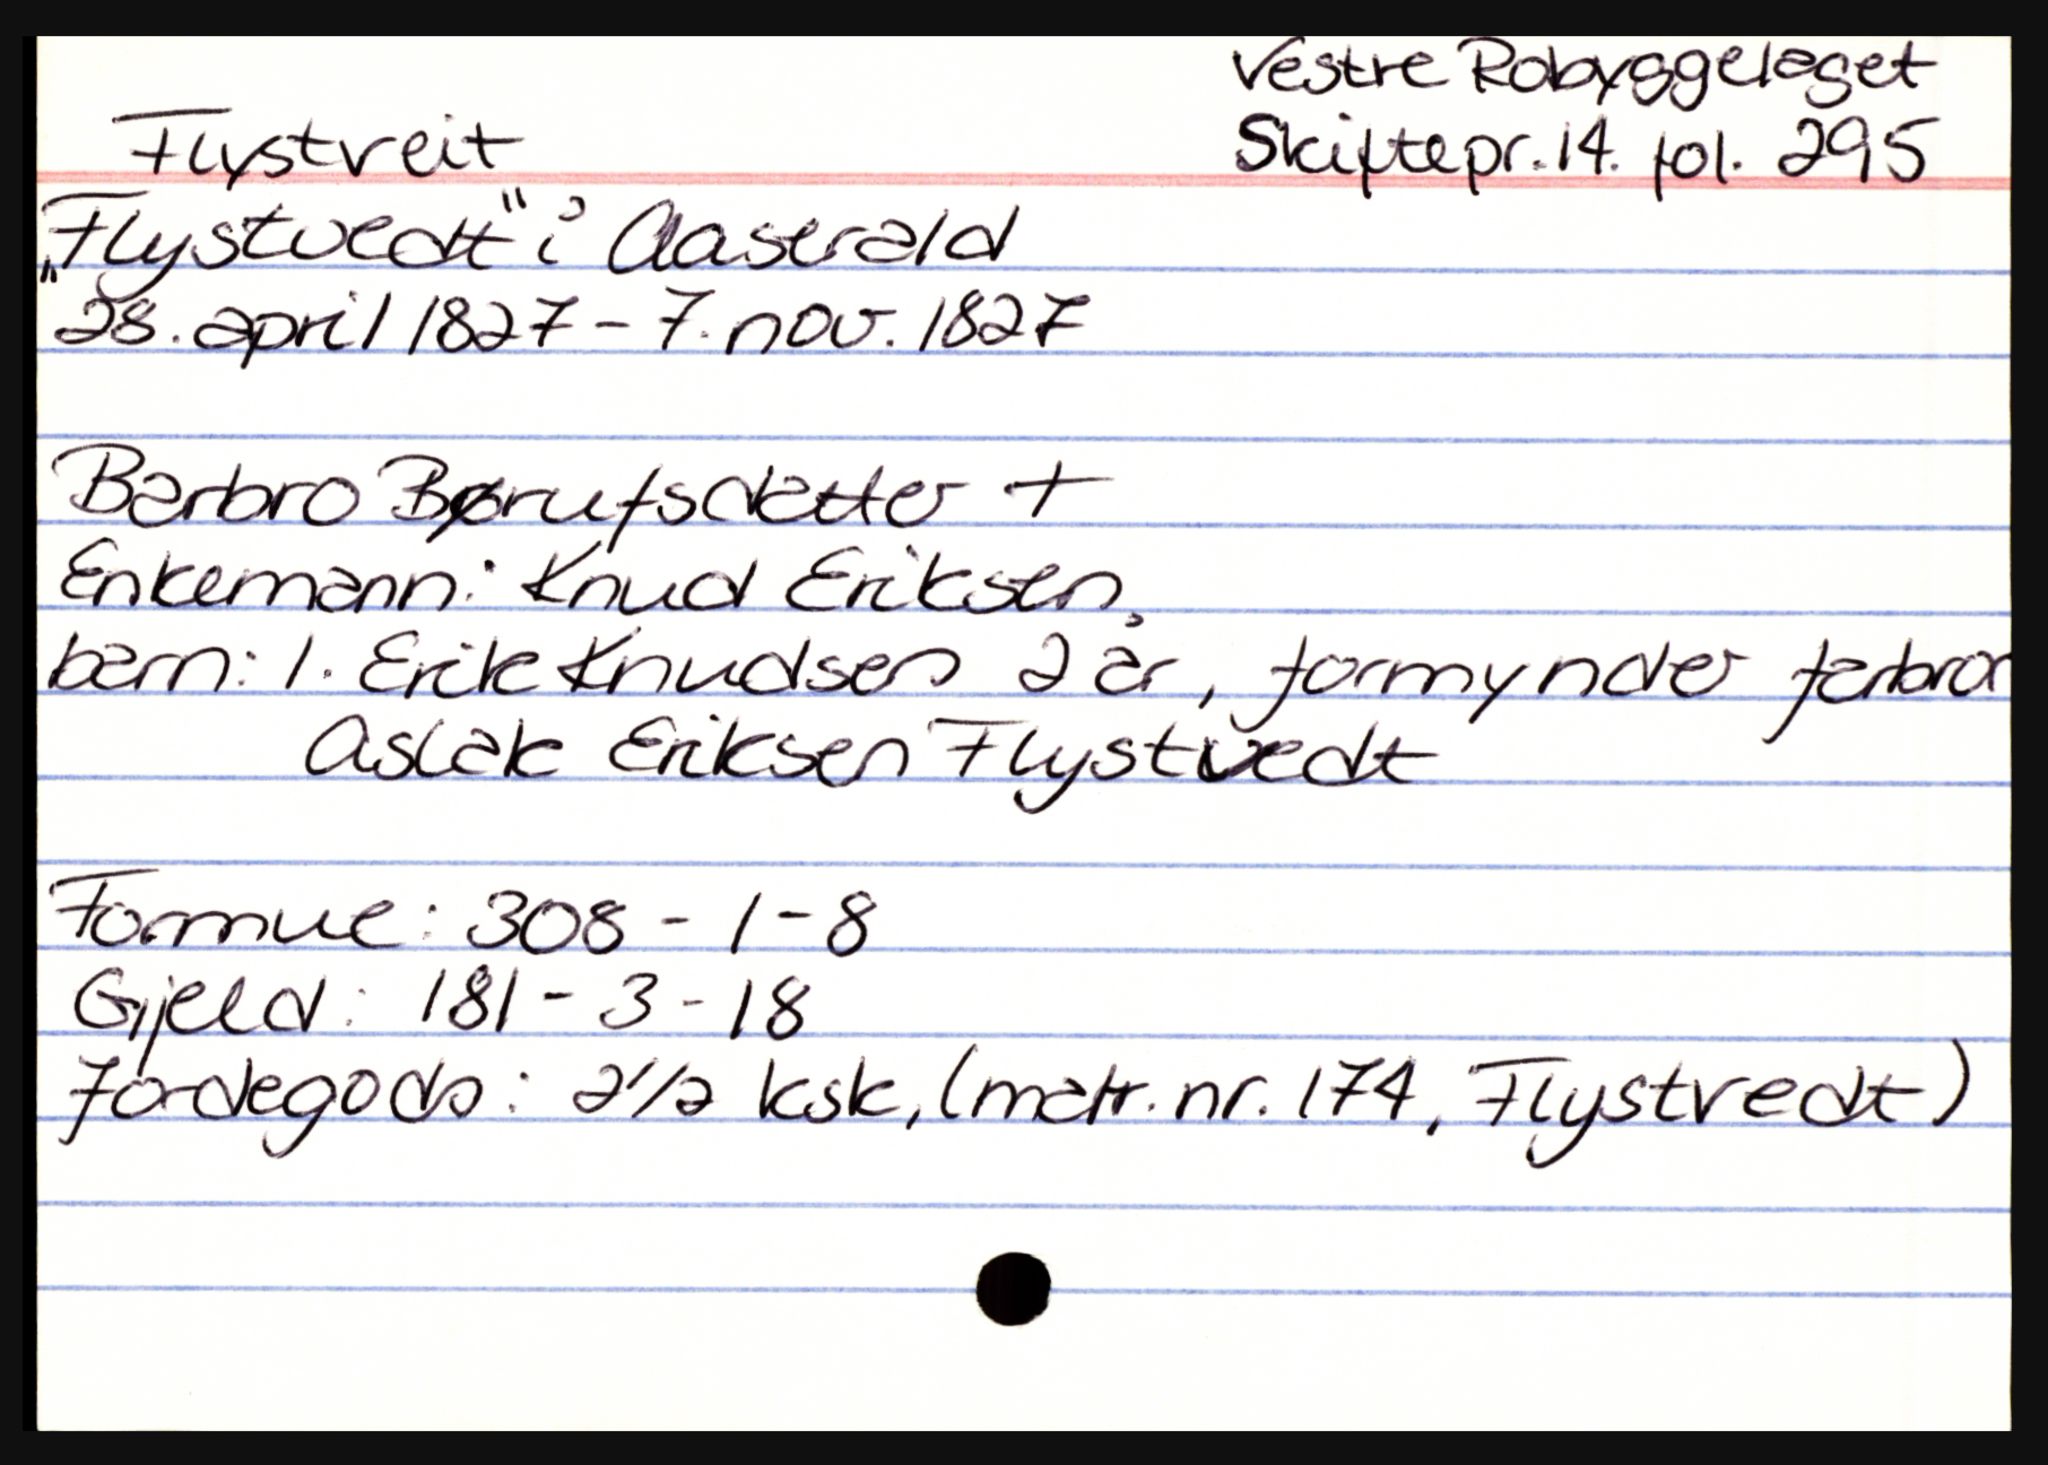 Vestre Robyggelaget
Flystveit
Skiftepr. 14. fol. 295
„Flystvedt" i Aaserald
28. april 1827 - 7. nov. 1827
Barbro Børufsdatter +
Enkemann: Knud Eriksen.
barn: 1. Erik Knudsen 2 år, formynder farbror
Aslak Eriksen Flystvedt
Formue: 308 - 1 - 8
Gjeld: 181 - 3 - 18
Jordegods: 2 1/2 ksk, (matr. nr. 174, Flystvedt)